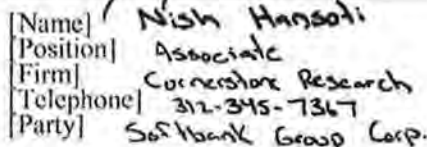 [Name] Nish Hansoti
[Position] Associate
[Firm] Cornerstone Research
[Telephone] 312-345-7367
[Party] Softbank Group Corp.